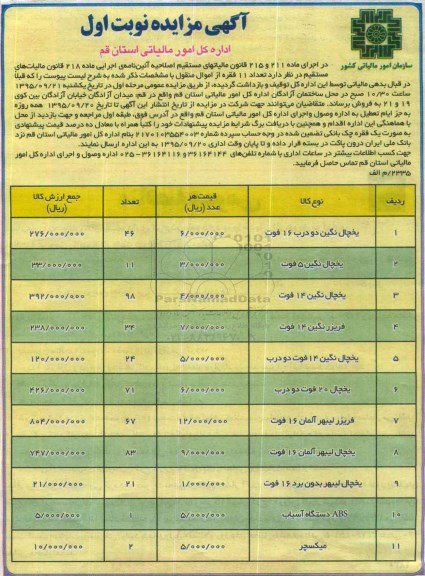 آگهی مزایده نوبت اول
اداره کل امور مالیاتی استان قم
سازمان امور مالیاتی کشور
در اجرای ماده ۲۱۱ و ۲۱۵ قانون مالیاتهای مستقیم اصلاحیه آئین‌نامه‌ی اجرایی ماده ۲۱۸ قانون مالیات‌های
مستقیم در نظر دارد تعداد ۱۱ فقره از اموال منقول با مشخصات ذکر شده به شرح لیست پیوست را که قبلا
در قبال بدهی مالیاتی توسط این اداره کل توقیف و بازداشت گردیده، از طریق مزایده عمومی مرحله اول در تاریخ یکشنبه ۱۳۹۵/۰۹/۲۱
ساعت ۱۰/۳۰ صبح در محل ساختمان آزادگان اداره کل امور مالیاتی استان قم واقع در قم، میدان آزادگان خیابان آزادگان بین کوی
۱۹ و ۲۱ به فروش برساند. متقاضیان می‌توانند جهت شرکت در مزایده از تاریخ انتشار این آگهی تا تاریخ ۱۳۹۵/۰۹/۲۰ همه روزه
به جز ایام تعطیل به اداره وصول و اجرای اداره کل امور مالیاتی استان قم واقع در آدرس فوق، طبقه اول مراجعه و جهت بازدید از محل
با هماهنگی این اداره اقدام و همچنین با دریافت برگ شرایط مزایده پیشنهادات خود را کتبا همراه با معادل ده درصد قیمت پیشنهادی
به صورت یک فقره چک بانکی تضمین شده در وجه حساب سپرده شماره ۲۱۷۰۱۰۳۵۵۴۰۰۳ بنام اداره کل امور مالیاتی استان قم نزد
بانک ملی ایران درون پاکت در بسته قرار داده و تا پایان وقت اداری ۱۳۹۵/۰۹/۲۰ به این اداره ارسال نمایند.
جهت کسب اطلاعات بیشتر در ساعات اداری با شماره تلفن‌های ۳۶۱۶۴۱۴۴ و ۳۶۱۶۴۱۱۶-۰۲۵ اداره وصول و اجرای اداره کل امور
مالیاتی استان قم تماس حاصل فرمایید.
۲۳۳۵/م الف
ردیف نوع کالا تعداد قیمت هر عدد (ریال) جمع ارزش کالا (ریال)
۱ یخچال نگین دو درب ۱۶ فوت ۴۶ ۶/۰۰۰/۰۰۰ ۲۷۶/۰۰۰/۰۰۰
۲ یخچال نگین ۵ فوت ۱۱ ۳/۰۰۰/۰۰۰ ۳۳/۰۰۰/۰۰۰
۳ یخچال نگین ۱۴ فوت ۹۸ ۴/۰۰۰/۰۰۰ ۳۹۲/۰۰۰/۰۰۰
۴ فریزر نگین ۱۴ فوت ۳۴ ۷/۰۰۰/۰۰۰ ۲۳۸/۰۰۰/۰۰۰
۵ یخچال نگین ۱۴ فوت دو درب ۲۴ ۵/۰۰۰/۰۰۰ ۱۲۰/۰۰۰/۰۰۰
۶ یخچال ۲۰ فوت دو درب ۷۱ ۶/۰۰۰/۰۰۰ ۴۲۶/۰۰۰/۰۰۰
۷ فریزر لیبهر آلمان ۱۶ فوت ۶۷ ۱۲/۰۰۰/۰۰۰ ۸۰۴/۰۰۰/۰۰۰
۸ یخچال لیبهر آلمان ۱۶ فوت ۸۳ ۹/۰۰۰/۰۰۰ ۷۴۷/۰۰۰/۰۰۰
۹ یخچال لیبهر بدون برد ۱۶ فوت ۲۱ ۱/۰۰۰/۰۰۰ ۲۱/۰۰۰/۰۰۰
۱۰ ABS دستگاه آسیاب ۱ ۵/۰۰۰/۰۰۰ ۵/۰۰۰/۰۰۰
۱۱ میکسچر ۲ ۵/۰۰۰/۰۰۰ ۱۰/۰۰۰/۰۰۰
ParsNamadData